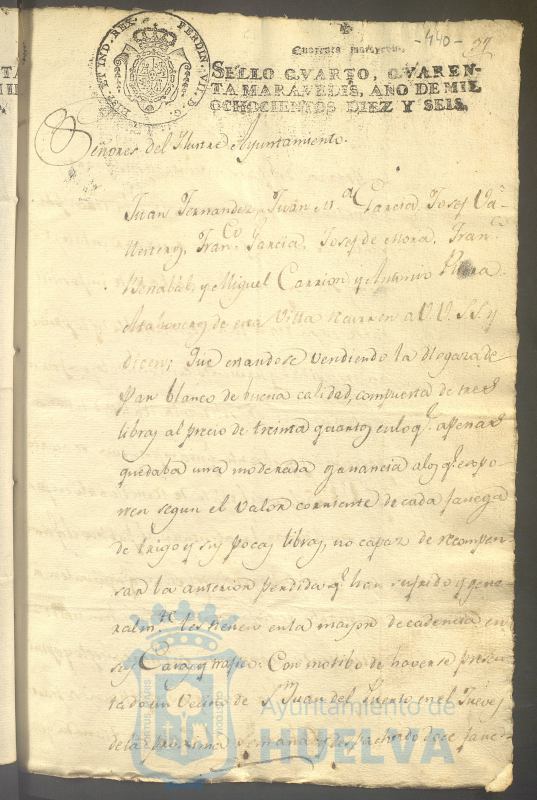 -440-
FERDIN. VII. D. G.
HISP. ET IND. REX
Quarenta maravedis.
SELLO QVARTO, QVAREN-
TA MARAVEDIS, AÑO DE MIL
OCHOCIENTOS DIEZ Y SEIS.
Señores del Ilustre Ayuntamiento.
Juan Fernandez, Juan M.ª Garcia, Josef
Franco Garcia, Josef de Mora, Franco
y Miguel Carrion, y Antonio
de esta Villa recurren a V.V. S.S. y
dicen: Que estandose vendiendo la Hogaza de
Pan blanco de buena calidad, compuesta de tres
libras al precio de treinta quartos en lo q.e apenas
quedaba una moderada ganancia a los q.e espo-
nen segun el valor corriente de cada fanega
de trigo y sus pocas libras, no capaz de recompen-
sar la anterior perdida q.e han sufrido y gene-
ralm.te les tienen en la mayor decadencia en
sus Casas y trafico. Con motibo de haverse presen-
tado un Vecino de S.n Juan del Puerto en el Jueves
de la proxima semana y despachado doce fane-
PORTUS MARIS
CUSTODIA
Ayuntamiento de
HUELVA